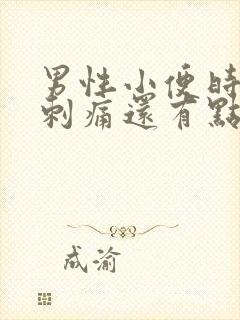 男性小便時
刺痛還有點
成渝